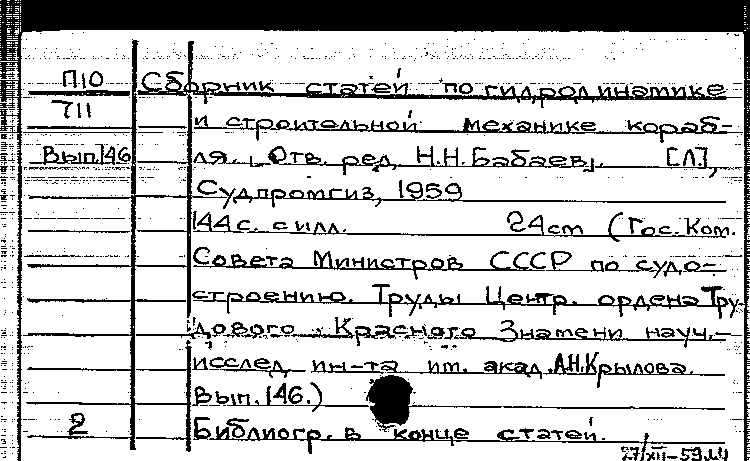 П10 Сборник статей по гидродинамике
711
и строительной механике кораб-
Вып.146 ля. [Отв. ред. Н.Н.Бабаев]. [Л],
Судпромгиз, 1959
144с. с илл. 24см (Гос. Ком.
Совета Министров СССР по судо-
строению. Труды Центр. ордена Тру-
дового Красного Знамени науч.-
исслед. ин-та им. акад. А.Н.Крылова.
Вып. 146.)
2 Библиогр. в конце статей.
27/XII-59